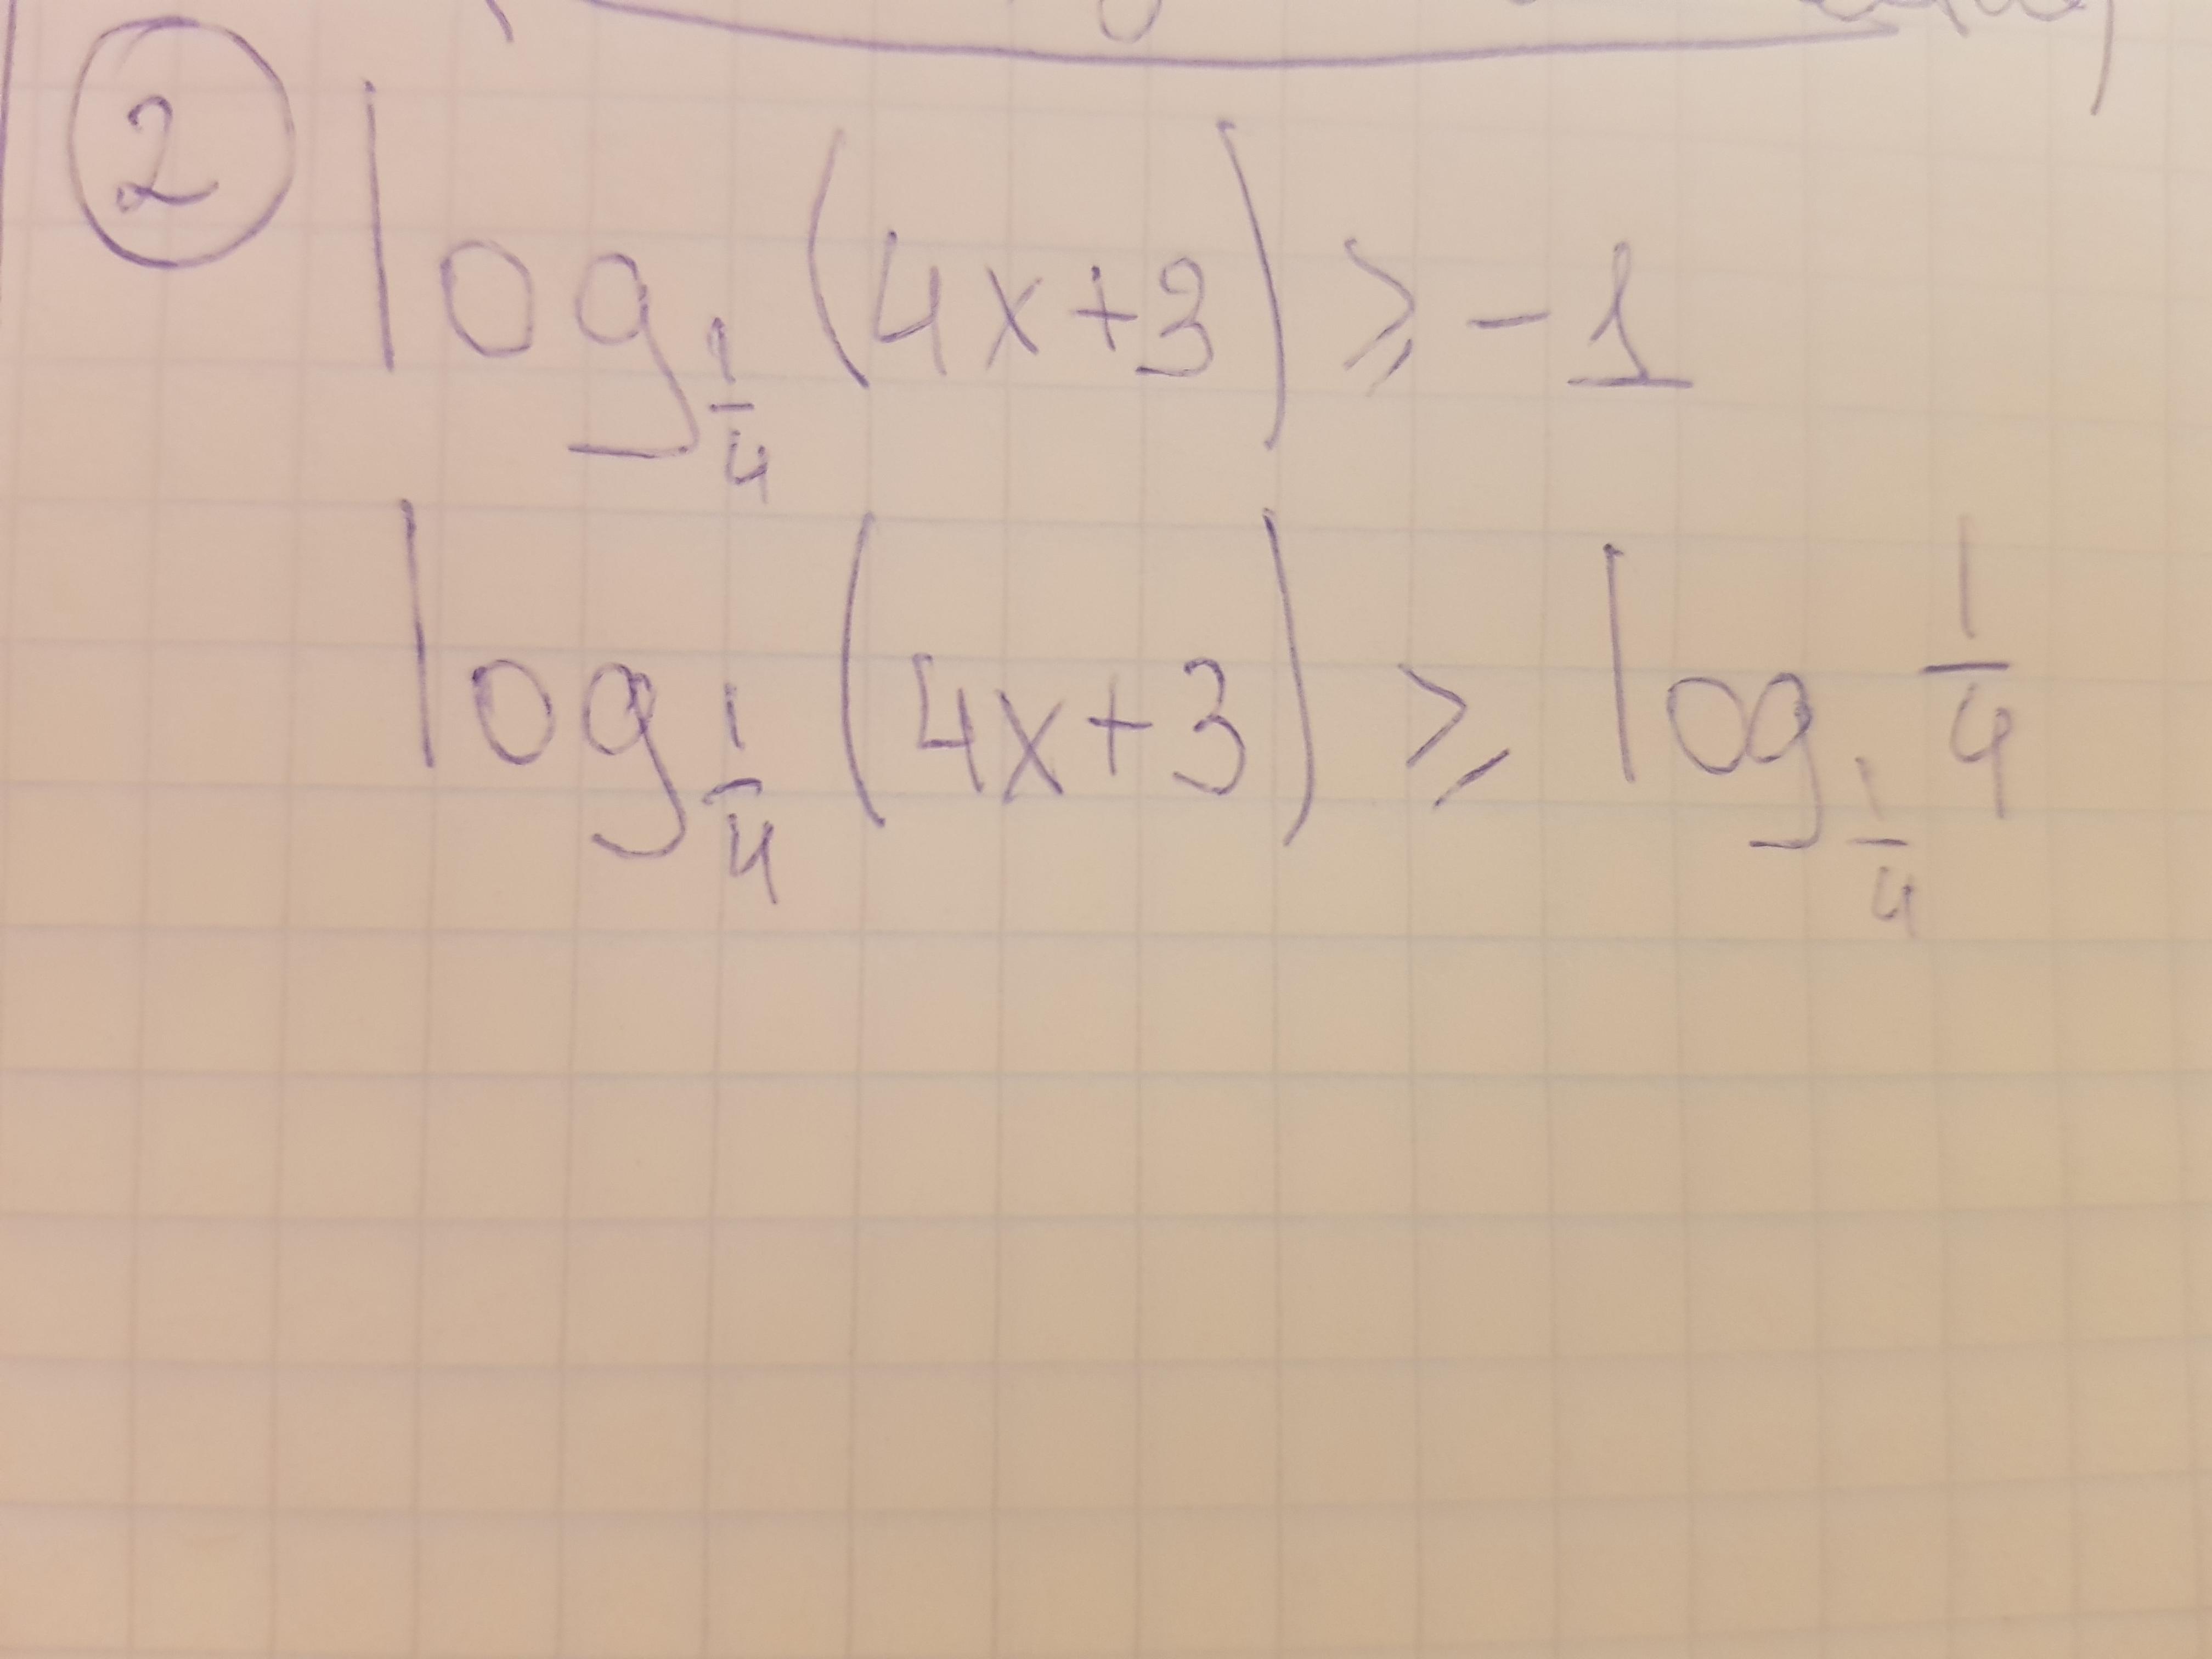 ② log_{1/4} (4x+3) ⩾ -1
log_{1/4} (4x+3) ⩾ log_{1/4} 1/4